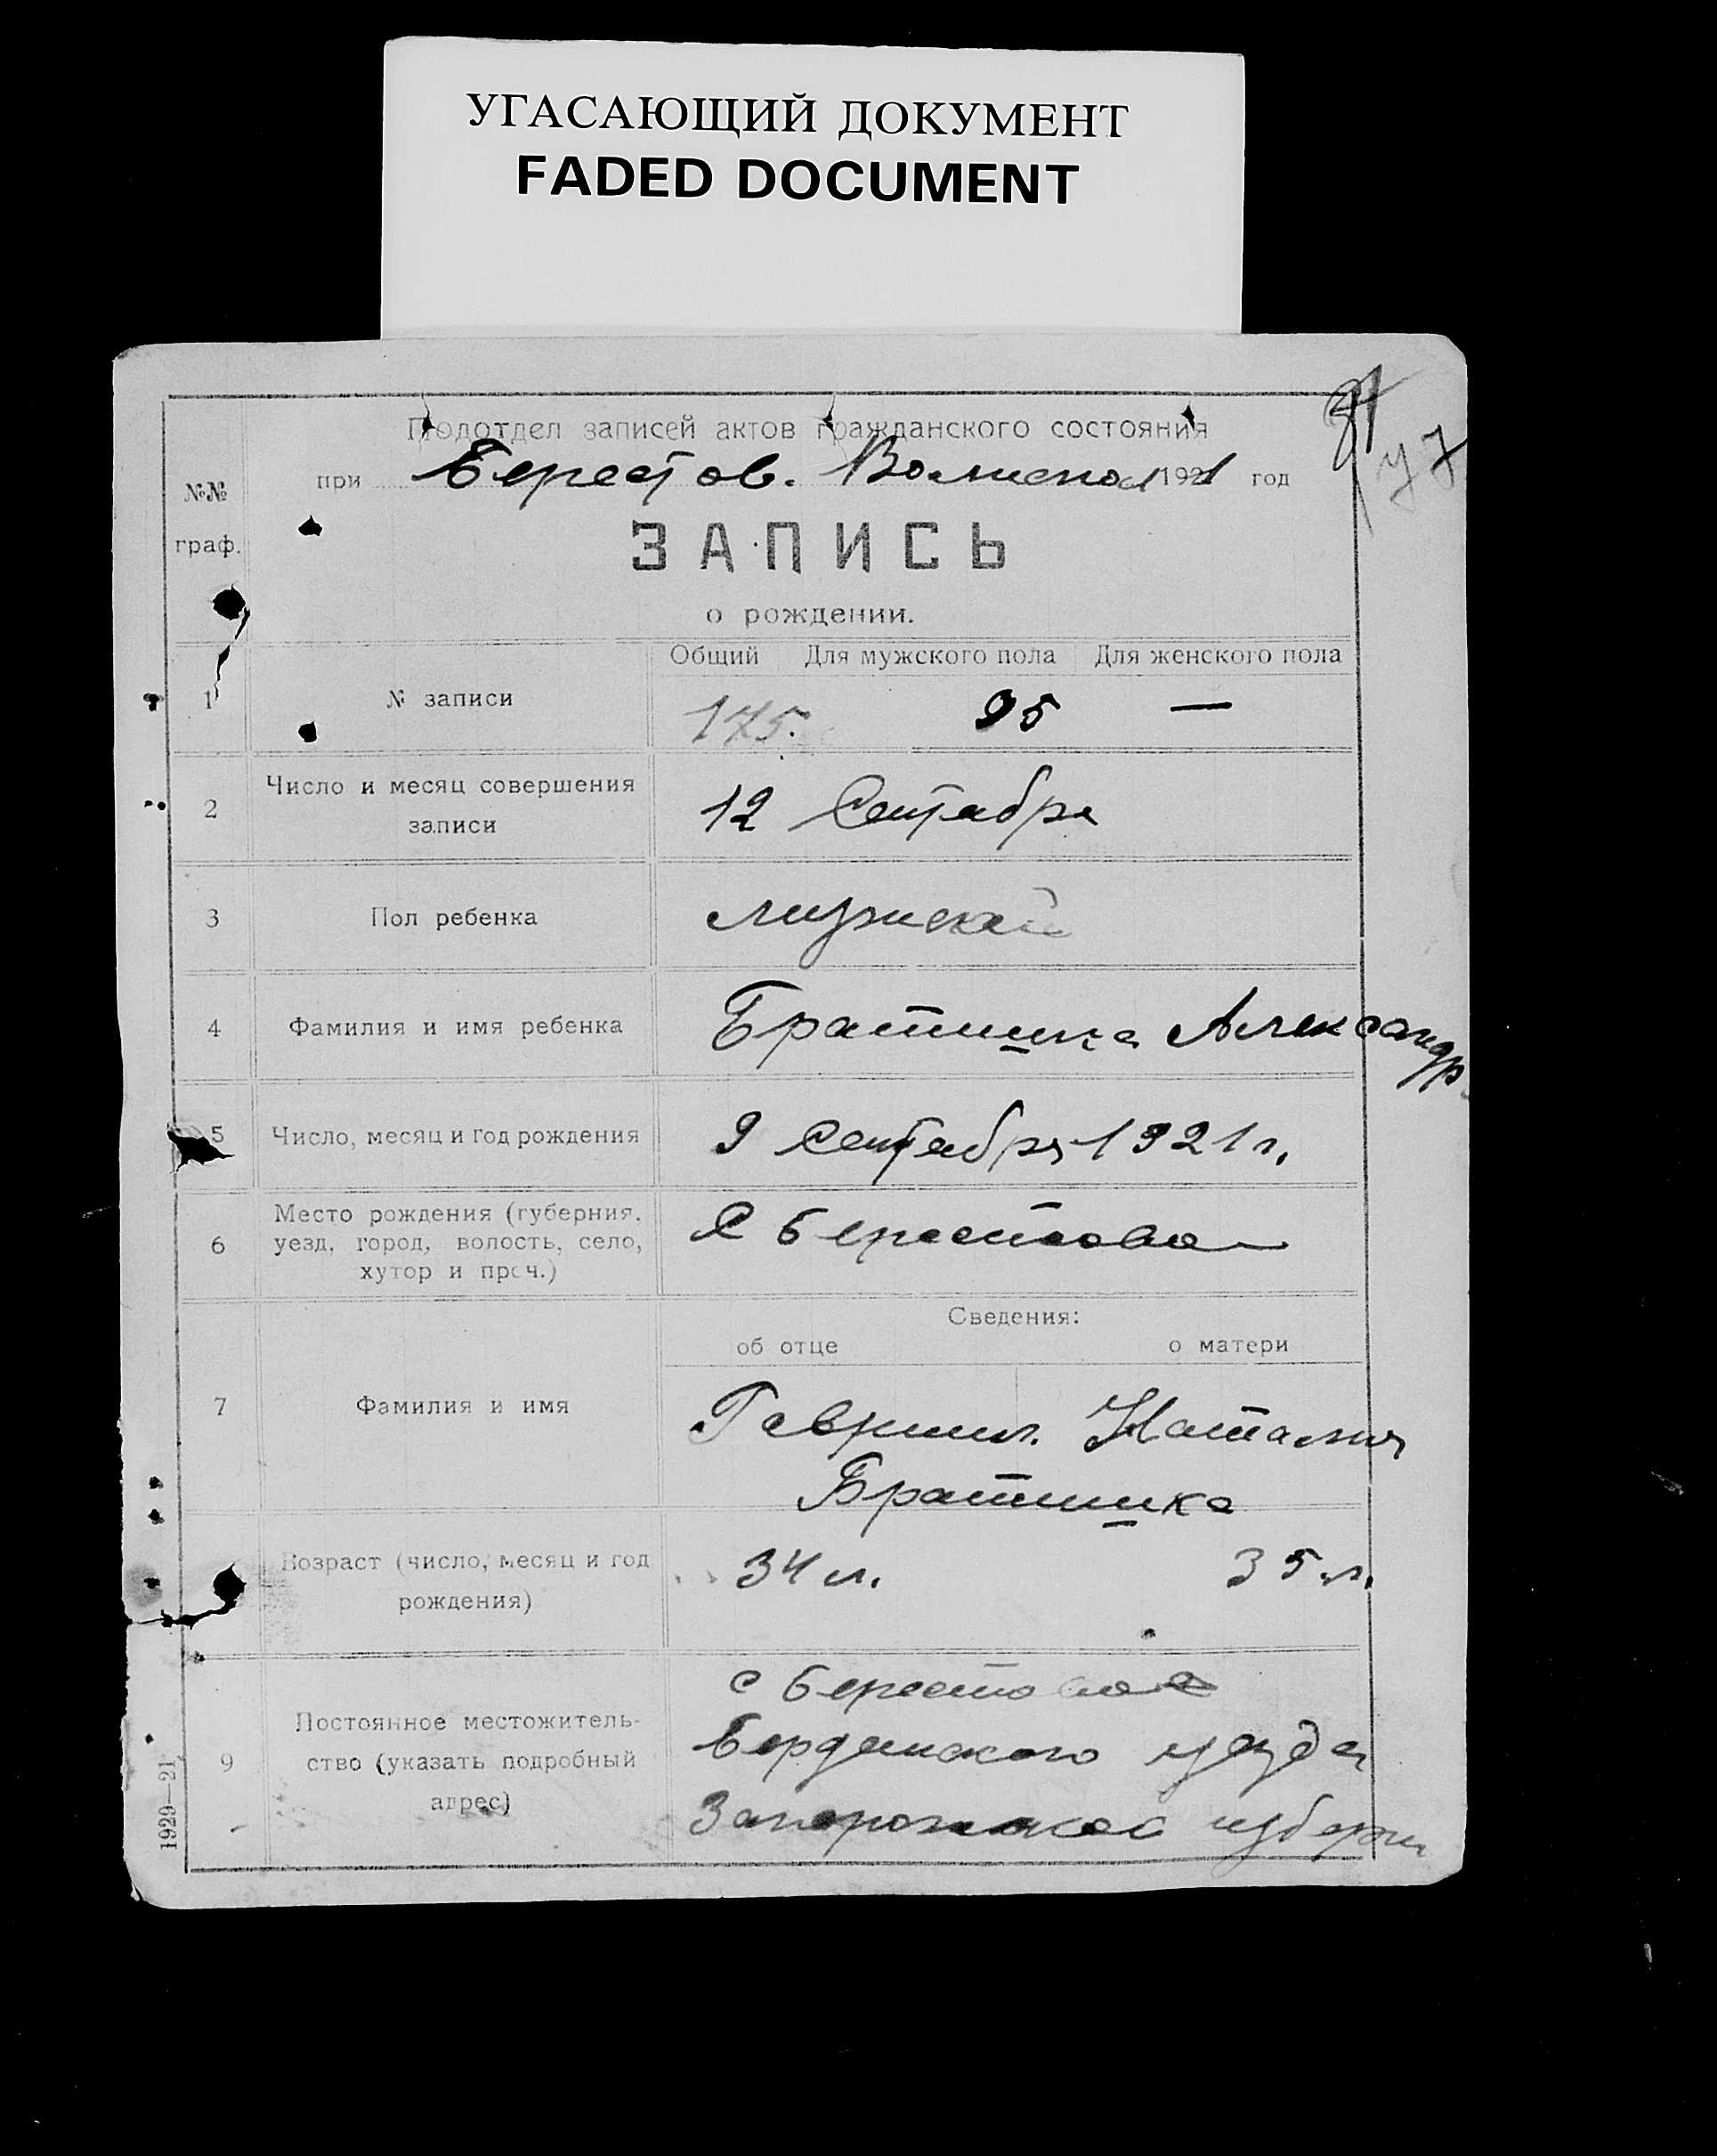 УГАСАЮЩИЙ ДОКУМЕНТ
FADED DOCUMENT
Подотдел записей актов гражданского состояния
при Берестов. 1921 год
№№ граф.
ЗАПИСЬ
о рождении.
Общий Для мужского пола Для женского пола
1 № записи 175. 95 —
2 Число и месяц совершения
записи
12 Сентября
3 Пол ребенка мужской
4 Фамилия и имя ребенка Братишка Александр
5 Число, месяц и год рождения 9 Сентября 1921 г.
6 Место рождения (губерния,
уезд, город, волость, село,
хутор и проч.)
С Берестова
Сведения:
об отце о матери
7 Фамилия и имя Гавриил. Наталия
Братишка
Возраст (число, месяц и год
рождения)
34 л. 35 л.
9 Постоянное местожитель-
ство (указать подробный
адрес)
с Берестова
Бердянского уезда
Запорожской губерни
1929—21